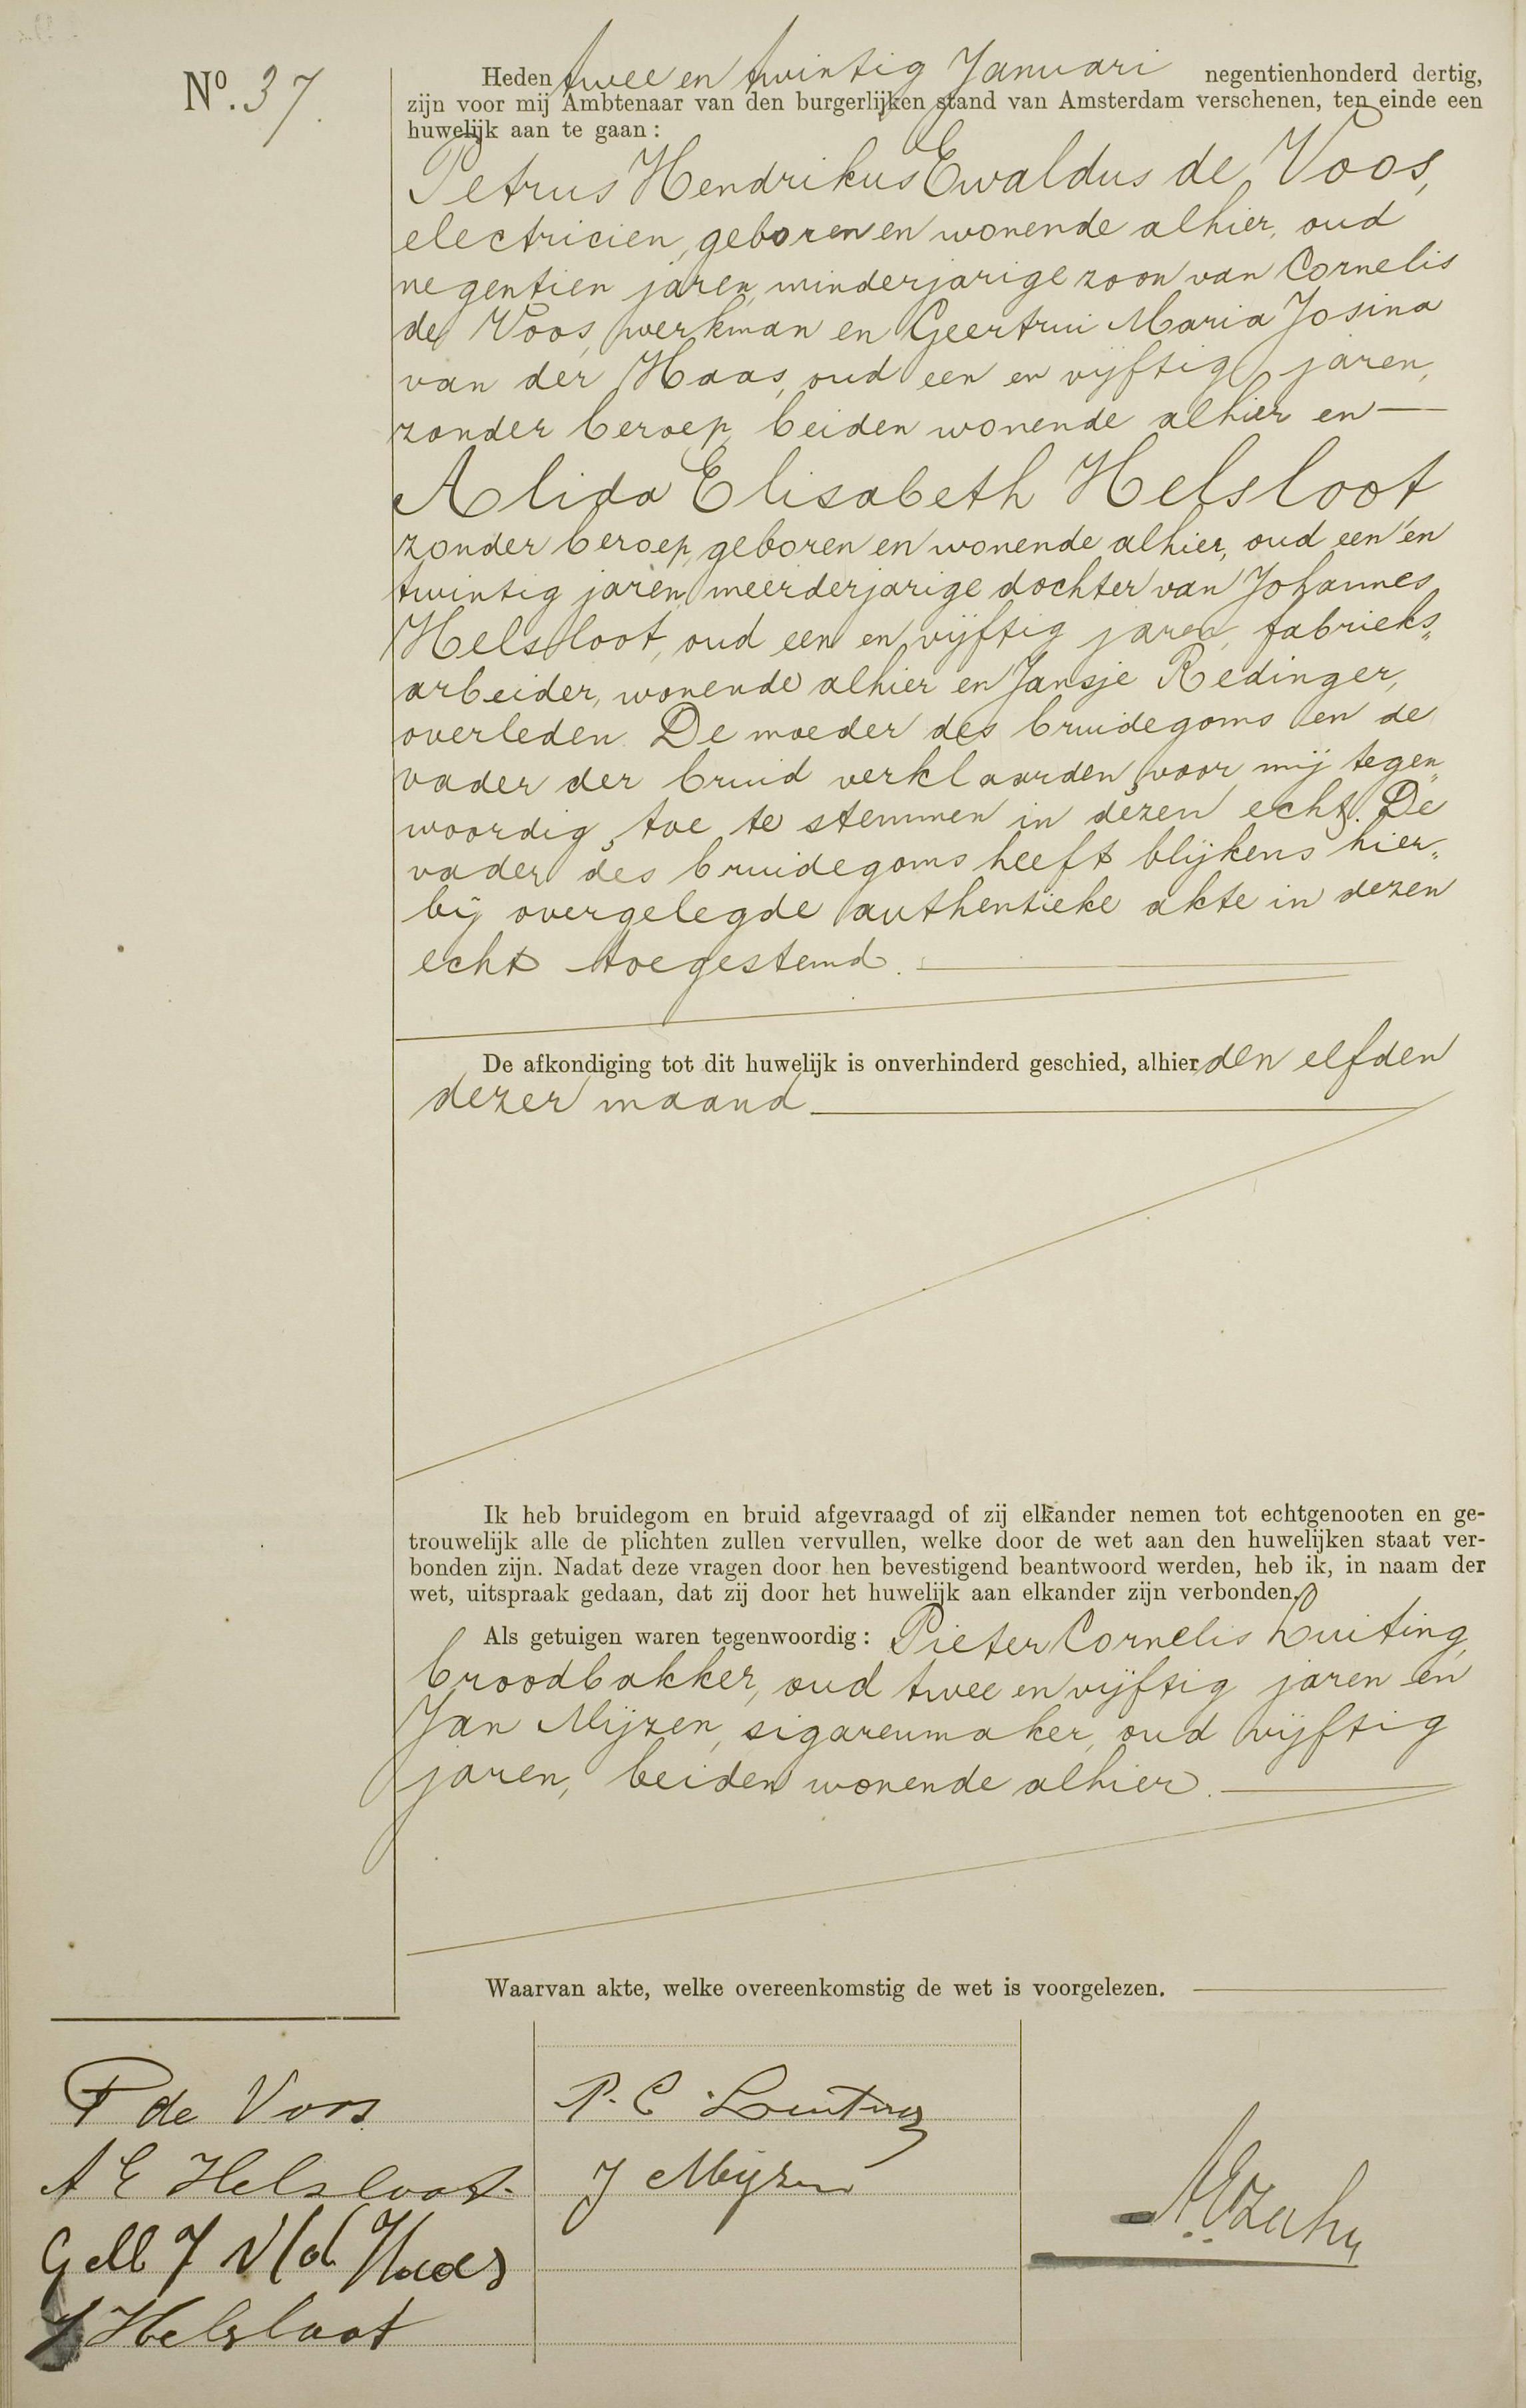 No. 37.
Heden twee en twintig Januari negentienhonderd dertig,
zijn voor mij Ambtenaar van den burgerlijken stand van Amsterdam verschenen, ten einde een
huwelijk aan te gaan:
Petrus Hendrikus Ewaldus de Voos,
electricien, geboren en wonende alhier, oud
negentien jaren, minderjarige zoon van Cornelis
de Voos, werkman en Geertrui Maria Josina
van der Haas, oud een en vijftig jaren,
zonder beroep, beiden wonende alhier en —
Alida Elisabeth Helsloot,
zonder beroep, geboren en wonende alhier, oud een en
twintig jaren, meerderjarige dochter van Johannes
Helsloot, oud een en vijftig jaren, fabrieks„
arbeider, wonende alhier en Jansje Redinger,
overleden. De moeder des bruidegoms en de
vader der bruid verklaarden voor mij tegen„
woordig toe te stemmen in dezen echt. De
vader des bruidegoms heeft blijkens hier„
bij overgelegde authentieke akte in dezen
echt toegestemd.
De afkondiging tot dit huwelijk is onverhinderd geschied, alhier den elfden
dezer maand
Ik heb bruidegom en bruid afgevraagd of zij elkander nemen tot echtgenooten en ge-
trouwelijk alle de plichten zullen vervullen, welke door de wet aan den huwelijken staat ver-
bonden zijn. Nadat deze vragen door hen bevestigend beantwoord werden, heb ik, in naam der
wet, uitspraak gedaan, dat zij door het huwelijk aan elkander zijn verbonden.
Als getuigen waren tegenwoordig: Pieter Cornelis Luiting,
broodbakker, oud twee en vijftig jaren en
Jan Mijzen, sigarenmaker, oud vijftig
jaren, beiden wonende alhier.
Waarvan akte, welke overeenkomstig de wet is voorgelezen.
P de Voos
A E Helsloot.
G M J v/d Haas
J Helsloot
P. C Luiting
J Mijzen